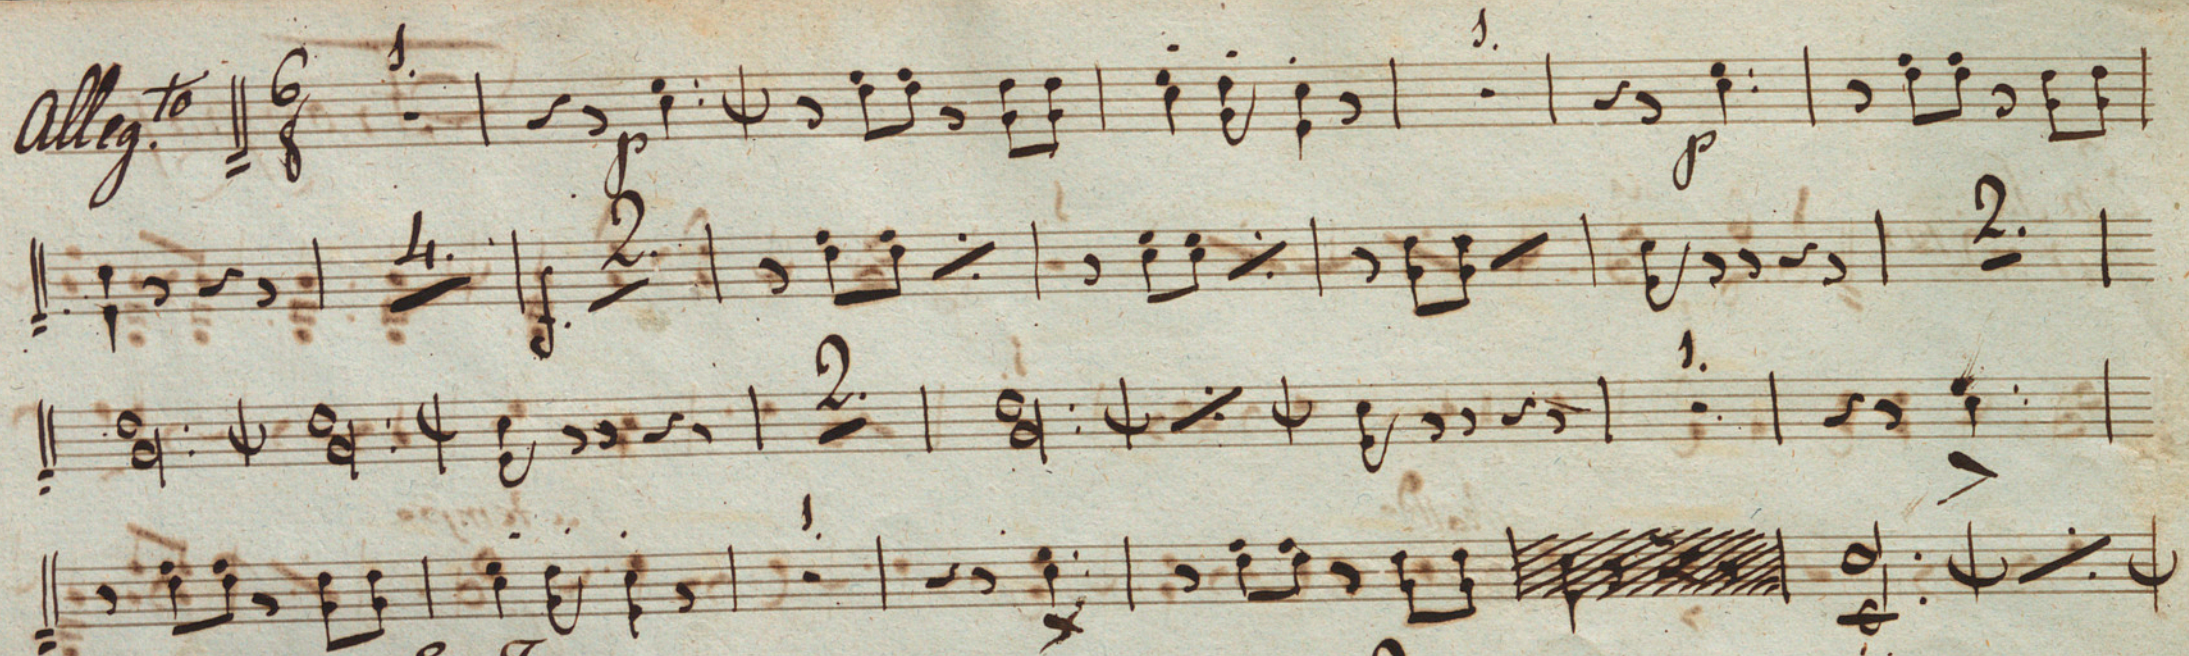 Alleg.to 6 1. 1.
8 p p
4. 2. 2.
f.
2. 1.
1.